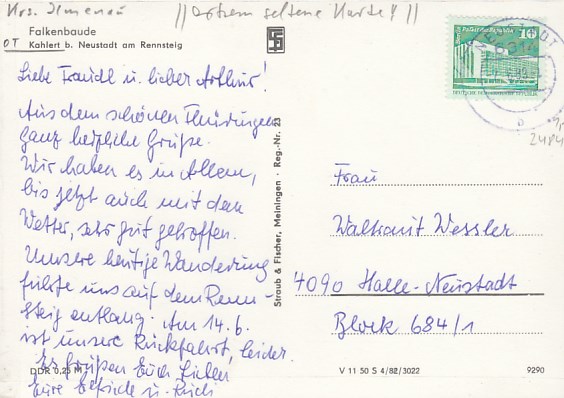 Krs. Ilmenau
|| extrem seltene Karte! ||
Falkenbaude
OT Kahlert b. Neustadt am Rennsteig
Liebe Traudl u. lieber Arthur!
Aus dem schönen Thüringen
ganz herzliche Grüße.
Wir haben es in Allem,
bis jetzt auch mit dem
Wetter, sehr gut getroffen.
Unsere heutige Wanderung
führte uns auf dem Renn-
steig entlang. Am 14.6.
ist unsere Rückfahrt, leider.
Es grüßen Euch Lieben
Eure Elfriede u. Rudi
DDR 0,25 M
Straub & Fischer, Meiningen · Reg.-Nr. 23
10
NEUSTADT
6314
b
Frau
Waltraut Wessler
4090 Halle-Neustadt
Block 684/1
V 11 50 S 4/82/3022
9290